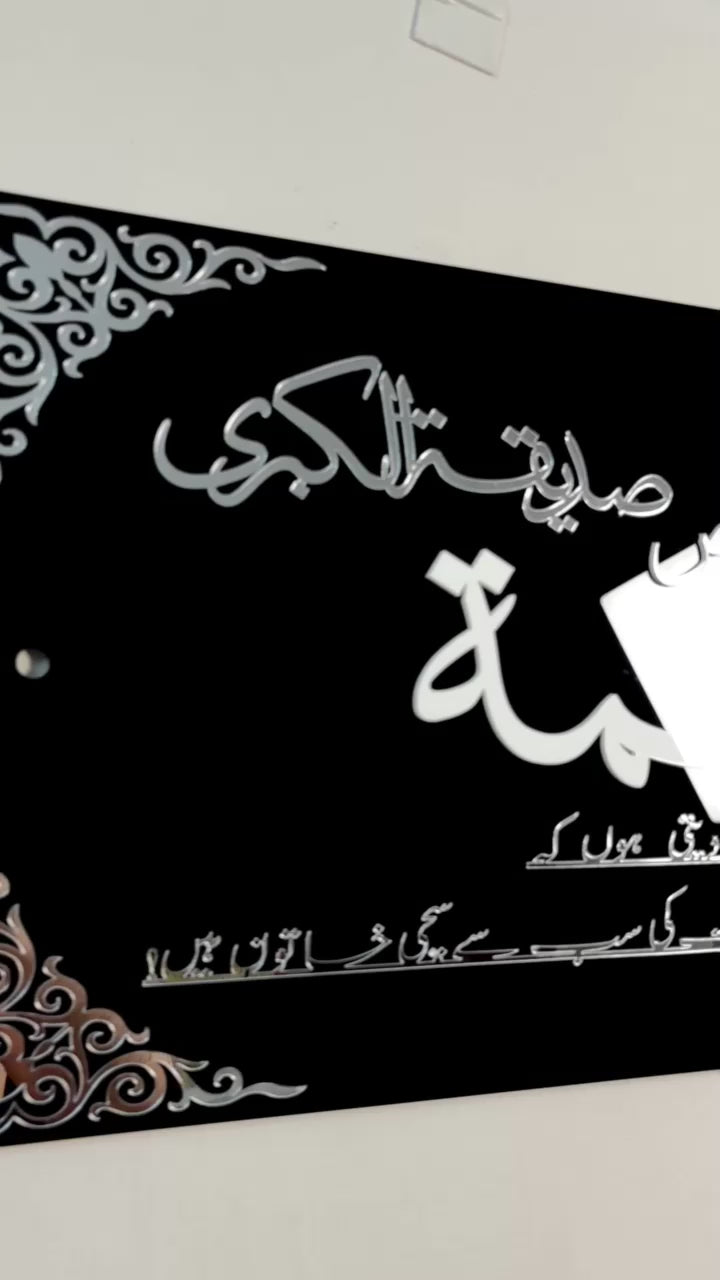 صدیقة الکبری
مة
دیتی ہوں کہ
کی سب سے سچی خاتون ہیں!